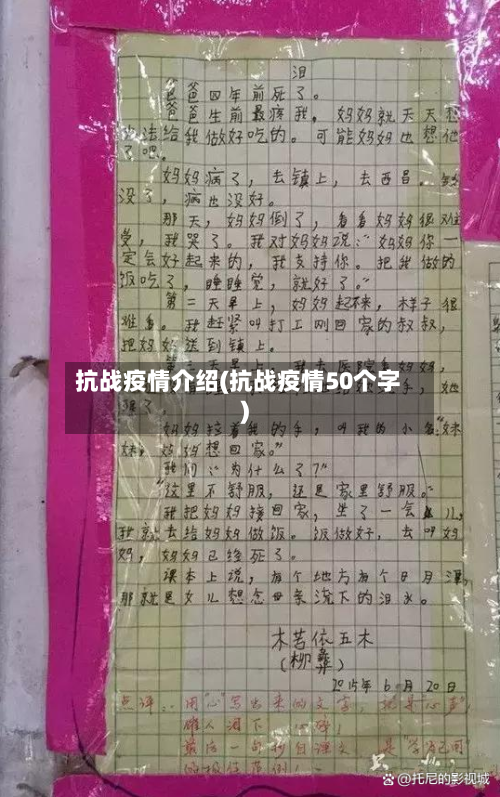 泪
爸爸四年前死了。
爸爸生前最疼我。妈妈就天天想
办法给我做好吃的。可能妈妈也想他
了吧。
妈妈病了，去镇上，去西昌。钱
没了，病也没好。
那天，妈妈倒了，看着妈妈很难
受，我哭了。我对妈妈说：“妈妈你一
定会好起来的，我支持你。把我做的
饭吃了，睡睡觉，就好了。”
第二天早上，妈妈起不来，样子很
难看。我赶紧叫打工刚回家的叔叔，
把妈妈送到镇上。
抗战疫情介绍(抗战疫情50个字
)
妈妈拉着我的手，叫我的小名“妹
妹，妈妈想回家。”
我问：“为什么了？”
“这里不舒服，还是家里舒服。”
我把妈妈接回家，坐了一会儿，
我就去给妈妈做饭。饭做好，去叫妈
妈，妈妈已经死了。
课本上说，有个地方有个日月潭，
那就是女儿想念母亲流下的泪水。
木苦依五木
(柳彝)
2015年6月20日
点评：用“心”写出来的文字，
催人泪下
最后一句
@托尼的影视城